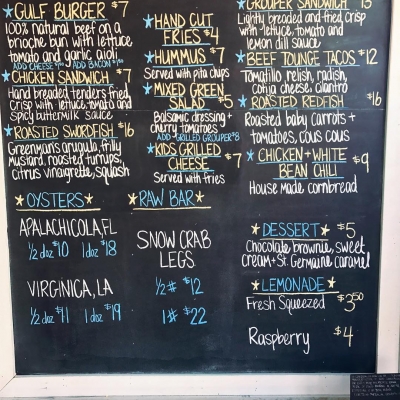 GULF BURGER $7
100% natural beef on a
brioche bun with lettuce
tomato and garlic aioli
ADD CHEESE $1.00 ADD BACON $1.00
CHICKEN SANDWICH $7
Hand breaded tenders fried
crisp with lettuce tomato and
spicy buttermilk sauce
ROASTED SWORDFISH $16
Greenman's arugula, frilly
mustard, roasted turnips,
citrus vinaigrette, squash
HAND CUT
FRIES $4
HUMMUS $7
Served with pita chips
MIXED GREEN
SALAD $5
Balsamic dressing +
cherry tomatoes
ADD GRILLED GROUPER $8
KIDS GRILLED
CHEESE $7
Served with fries
GROUPER SANDWICH 13
Lightly breaded and fried crisp
with lettuce, tomato and
lemon dill sauce
BEEF TOUNGE TACOS $12
Tomatillo relish, radish,
cotija cheese, cilantro
ROASTED REDFISH $16
Roasted baby carrots +
tomatoes, cous cous
CHICKEN + WHITE
BEAN CHILI $9
House made cornbread
OYSTERS
APALACHICOLA, FL
1/2 doz $10 1 doz $18
VIRGINICA, LA
1/2 doz $11 1 doz $19
RAW BAR
SNOW CRAB
LEGS
1/2 # $12
1 # $22
DESSERT $5
Chocolate brownie, sweet
cream + St Germaine caramel
LEMONADE
Fresh Squeezed $3.50
Raspberry $4